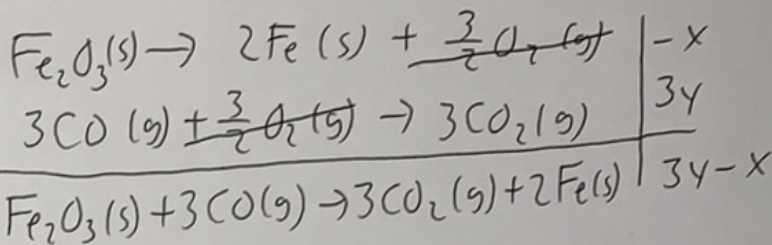 Fe₂O₃(s) → 2Fe (s) + 3/2 O₂ (g) | -x
3CO (g) + 3/2 O₂ (g) → 3CO₂ (g) | 3y
Fe₂O₃ (s) + 3CO(g) → 3CO₂ (g) + 2Fe(s) | 3y - x